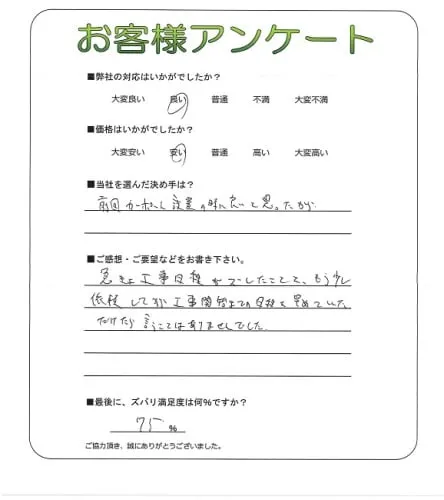 お客様アンケート
■弊社の対応はいかがでしたか？
大変良い 良い 普通 不満 大変不満
■価格はいかがでしたか？
大変安い 安い 普通 高い 大変高い
■当社を選んだ決め手は？
前回カーポート設置の時に良いと思ったから
■ご感想・ご要望などをお書き下さい。
急きょ工事日程が
もう少し
工事開始までの日程を早めていた
だけたら言うことはありませんでした。
■最後に、ズバリ満足度は何%ですか？
75 %
ご協力頂き、誠にありがとうございました。